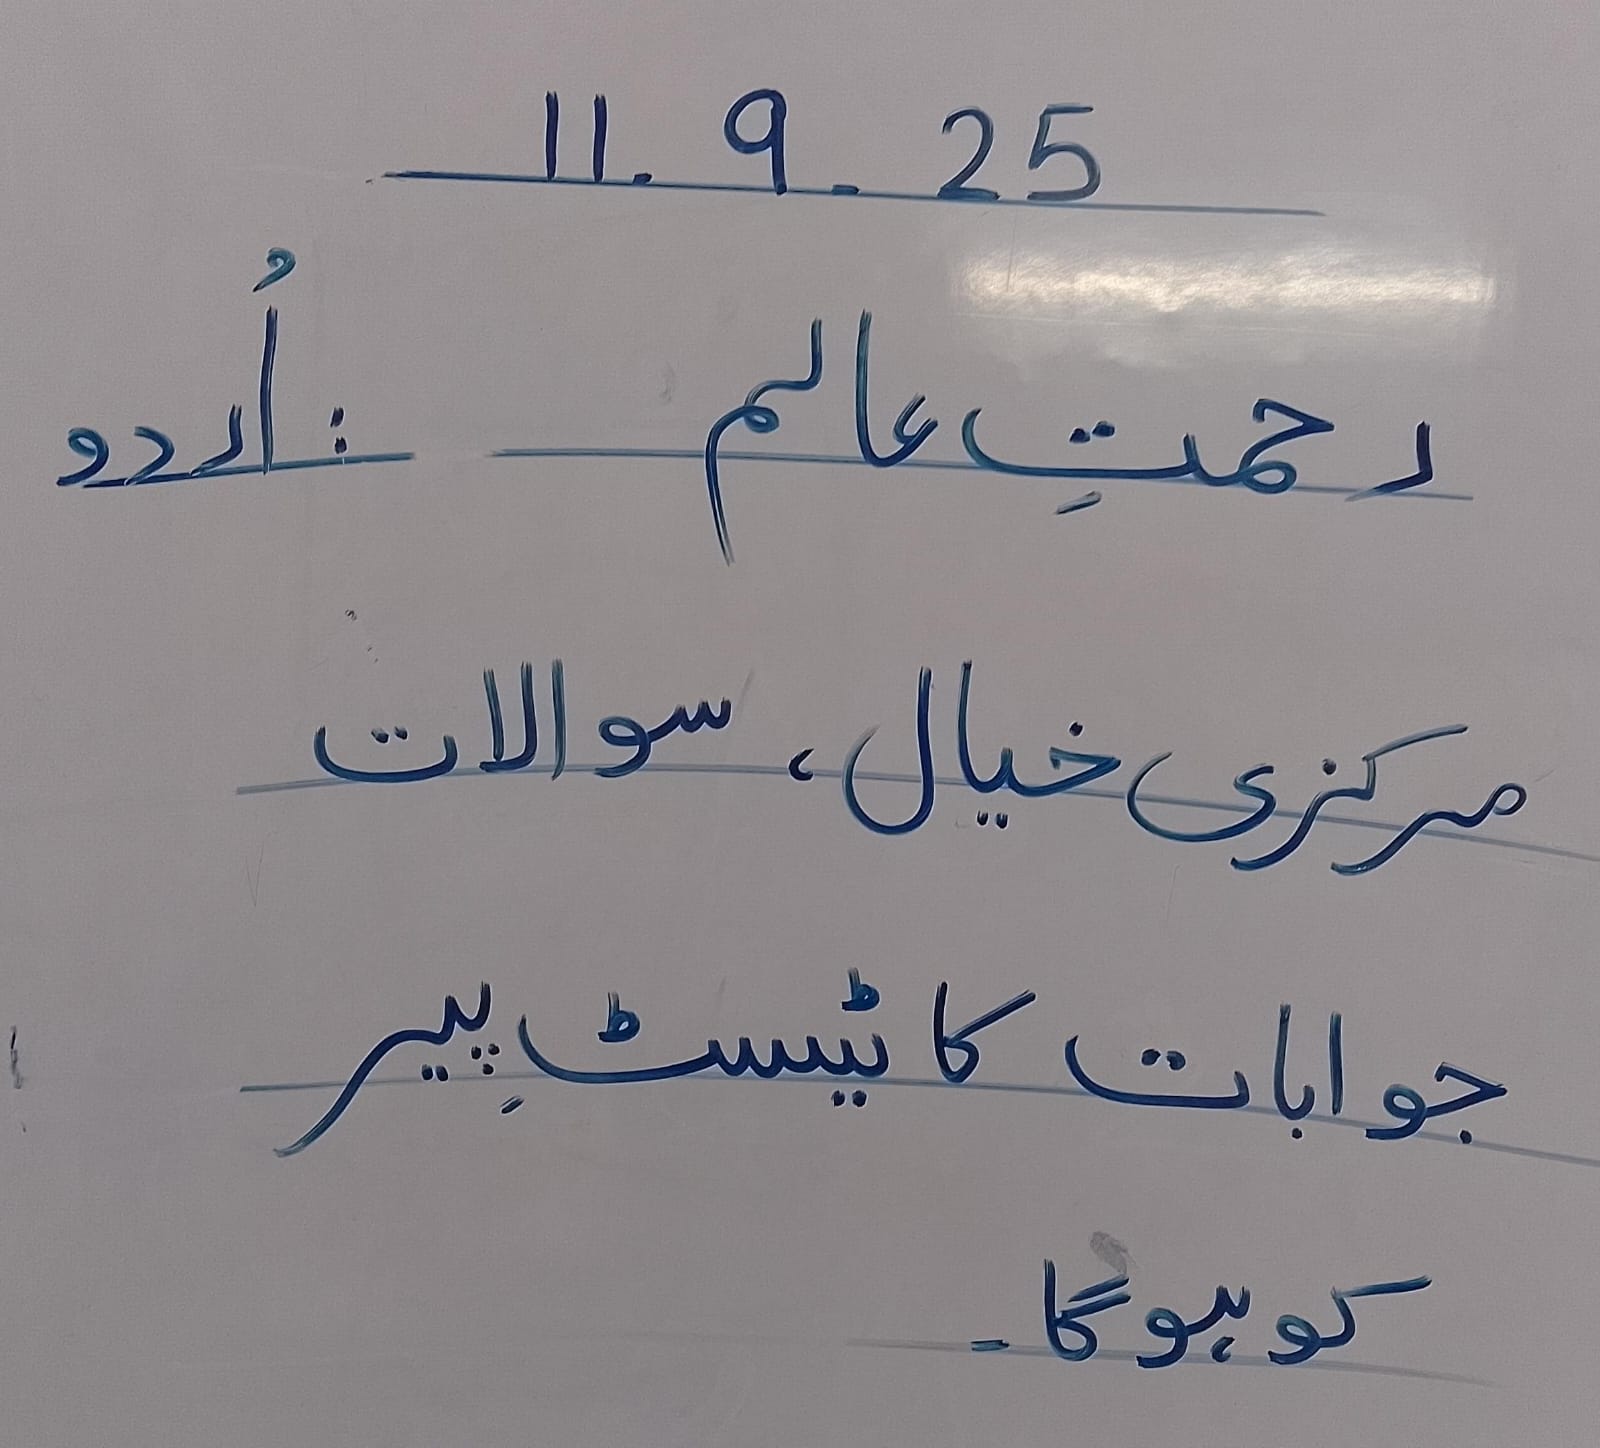 11.9.25
اُردو : رحمتِ عالم
مرکزی خیال، سوالات
جوابات کا ٹیسٹ پِیر
کو ہوگا۔